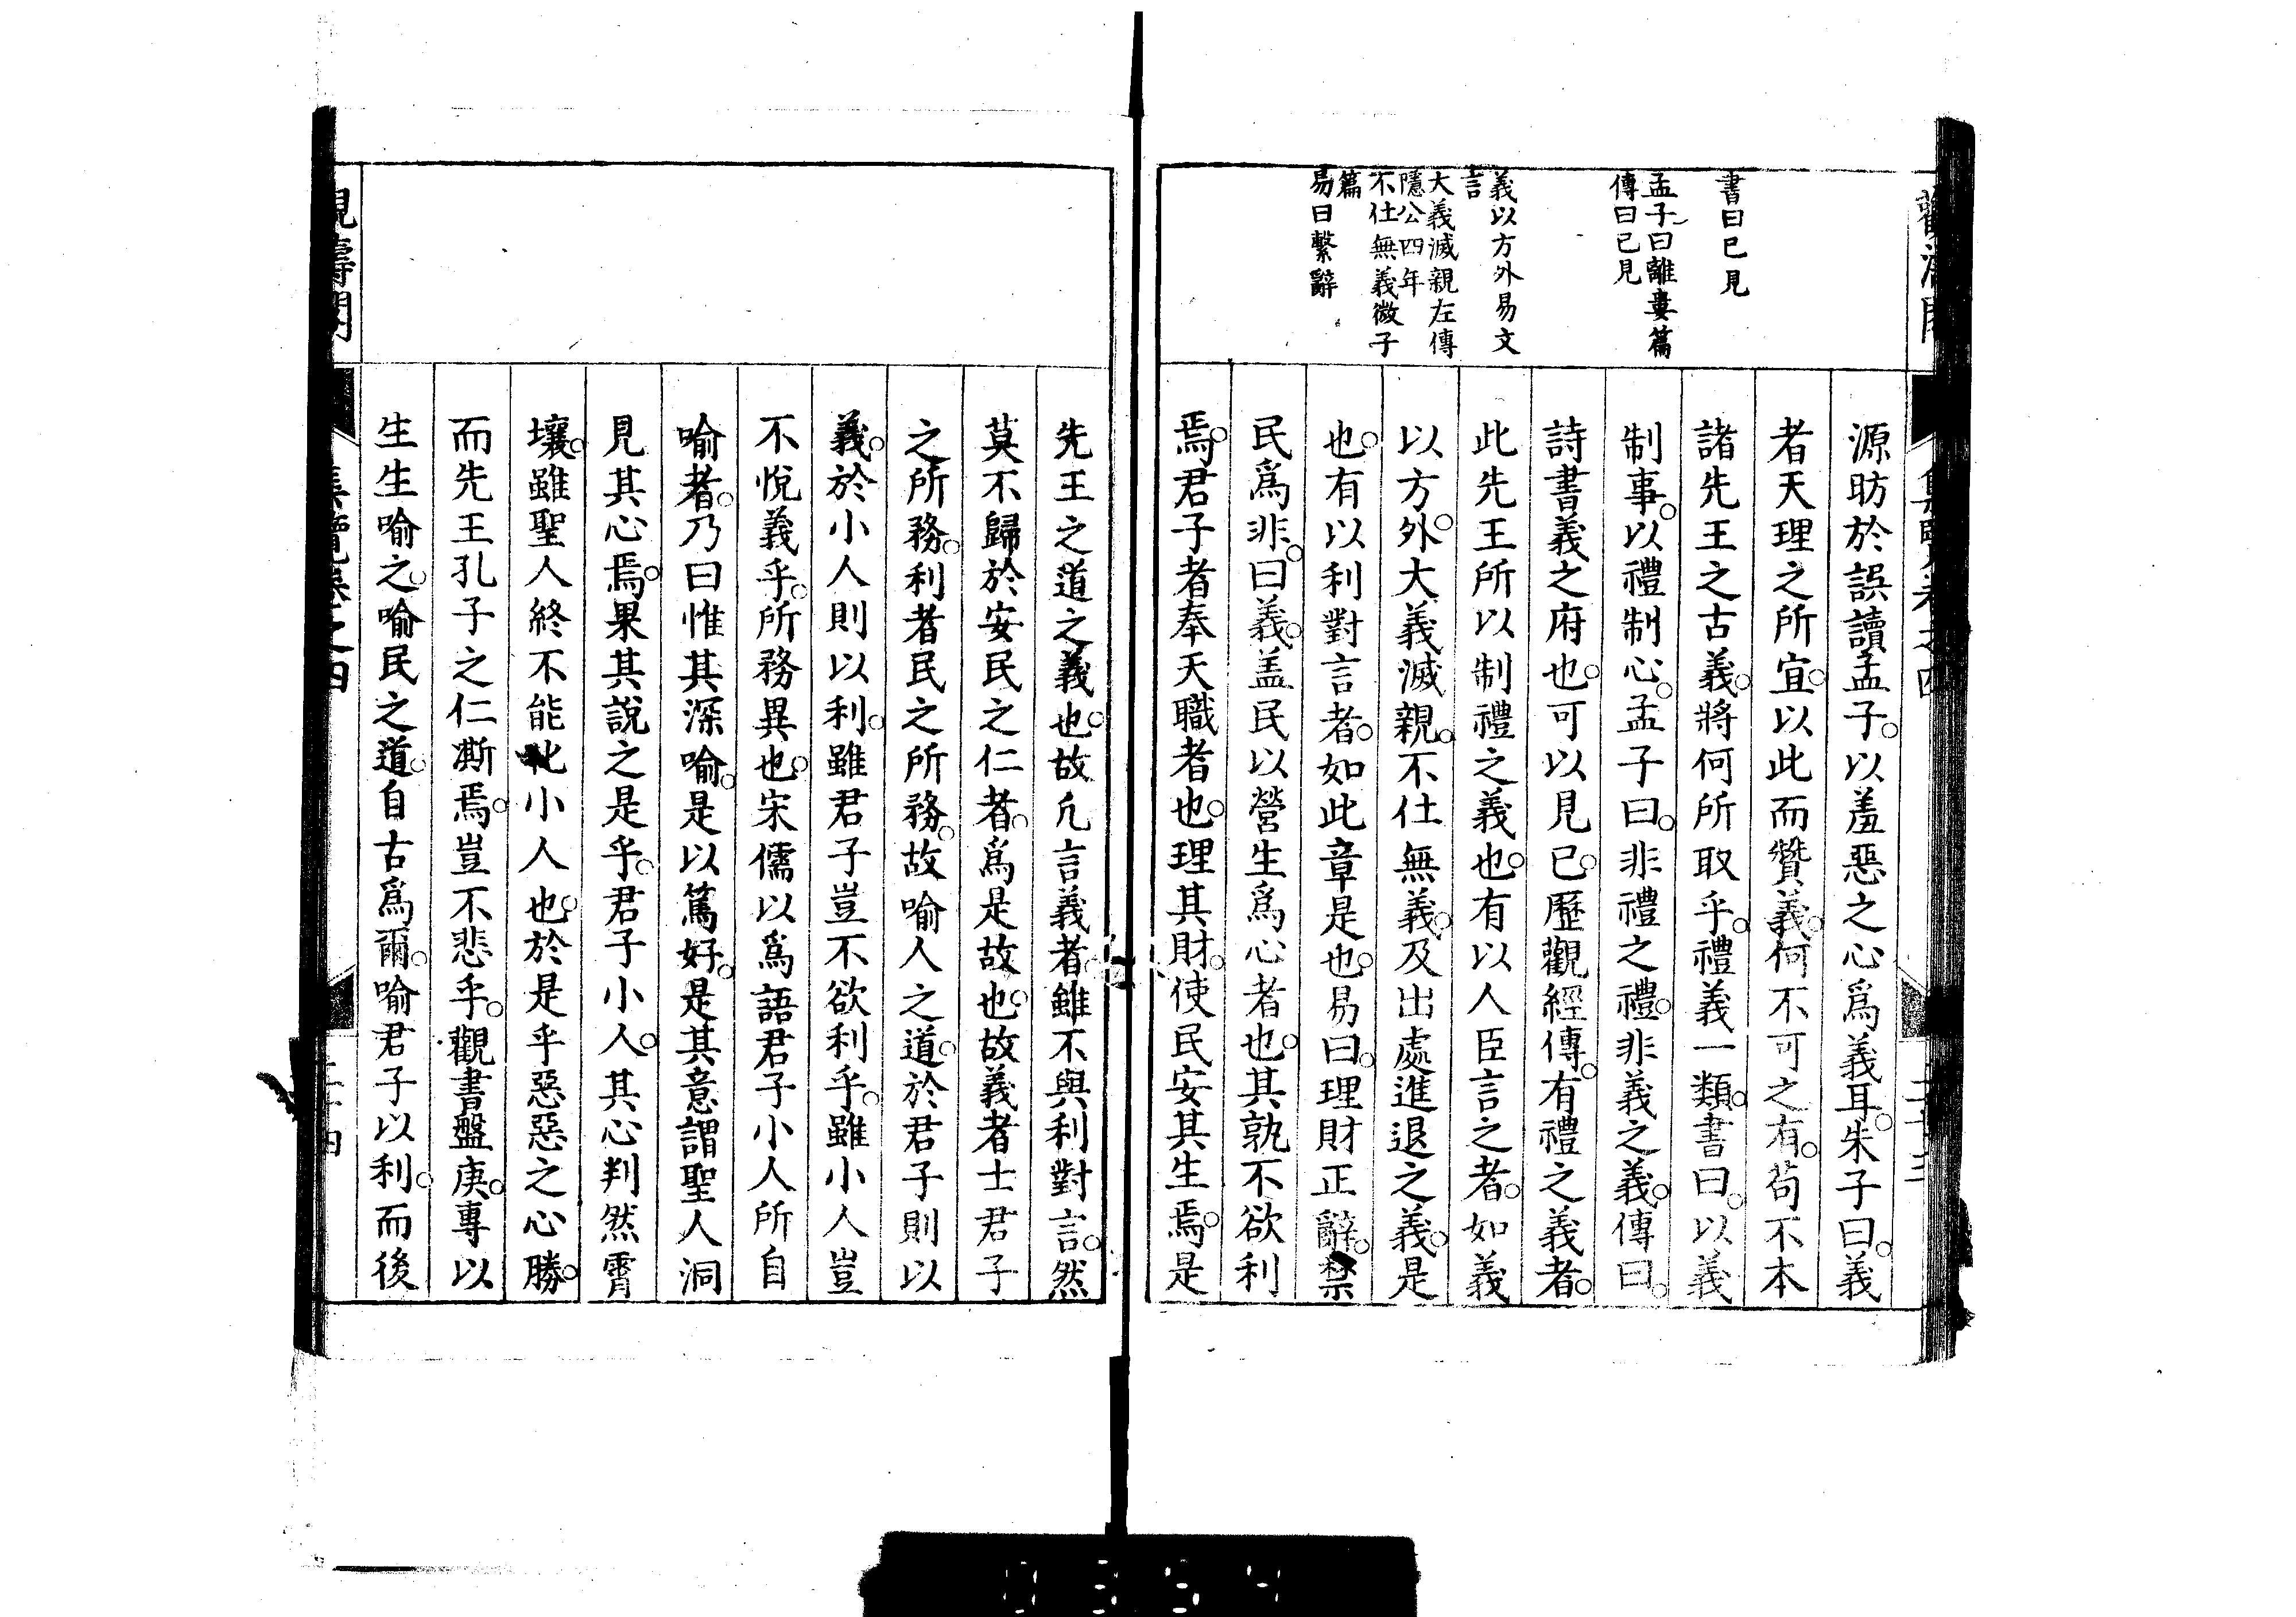 書曰已見
孟子曰離婁篇
傳曰已見
義以方外易文
言
大義滅親左傳
隱公四年
不仕無義微子
篇
易曰繫辭
源昉於誤讀孟子。以羞惡之心爲義耳。朱子曰。義
者天理之所宜。以此而贊義。何不可之有。苟不本
諸先王之古義。將何所取乎。禮義一類。書曰。以義
制事。以禮制心。孟子曰。非禮之禮。非義之義。傳曰。
詩書義之府也。可以見已。歷觀經傳。有禮之義者。
此先王所以制禮之義也。有以人臣言之者。如義
以方外。大義滅親。不仕無義。及出處進退之義。是
也。有以利對言者。如此章是也。易曰。理財正辭。禁
民爲非。曰義。盖民以營生爲心者也。其孰不欲利
焉。君子者奉天職者也。理其財。使民安其生焉。是
先王之道之義也。故凢言義者。雖不與利對言。然
莫不歸於安民之仁者。爲是故也。故義者士君子
之所務。利者民之所務。故喻人之道。於君子則以
義。於小人則以利。雖君子豈不欲利乎。雖小人豈
不悅義乎。所務異也。宋儒以爲語君子小人所自
喻者。乃曰惟其深喻。是以篤好。是其意謂聖人洞
見其心焉。果其說之是乎。君子小人。其心判然霄
壤。雖聖人終不能化小人也。於是乎惡惡之心勝。
而先王孔子之仁澌焉。豈不悲乎。觀書盤庚。專以
生生喻之。喻民之道。自古爲爾。喻君子以利。而後